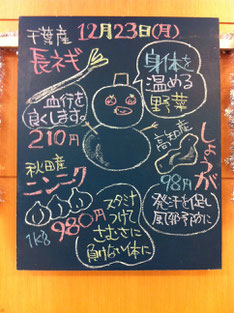 12月23日(月)
千葉産
長ネギ
血行を
良くします。
210円
身体を
温める
野菜
高知産
しょうが
98円
発汗を促し
風邪予防に
秋田産
ニンニク
1kg
980円
スタミナ
つけて
さむさに
負けない体に